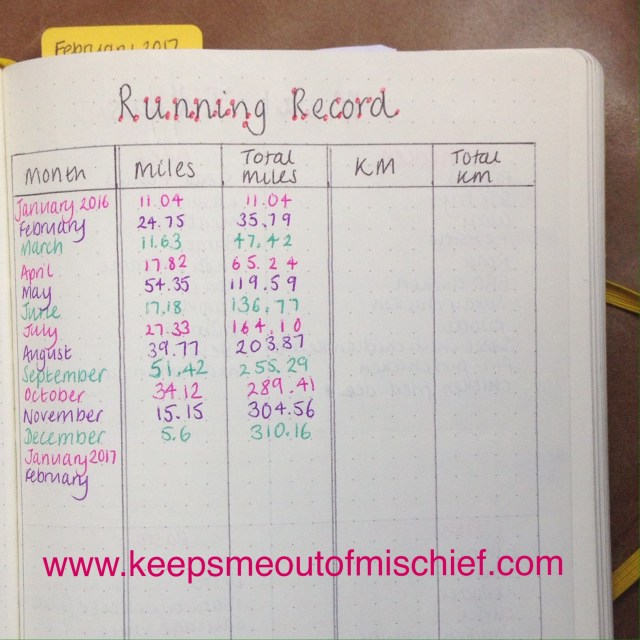 February 2017
Running Record
Month Miles Total miles KM Total km
January 2016 11.04 11.04
February 24.75 35.79
March 11.63 47.42
April 17.82 65.24
May 54.35 119.59
June 17.18 136.77
July 27.33 164.10
August 39.77 203.87
September 51.42 255.29
October 34.12 289.41
November 15.15 304.56
December 5.6 310.16
January 2017
February
www.keepsmeoutofmischief.com